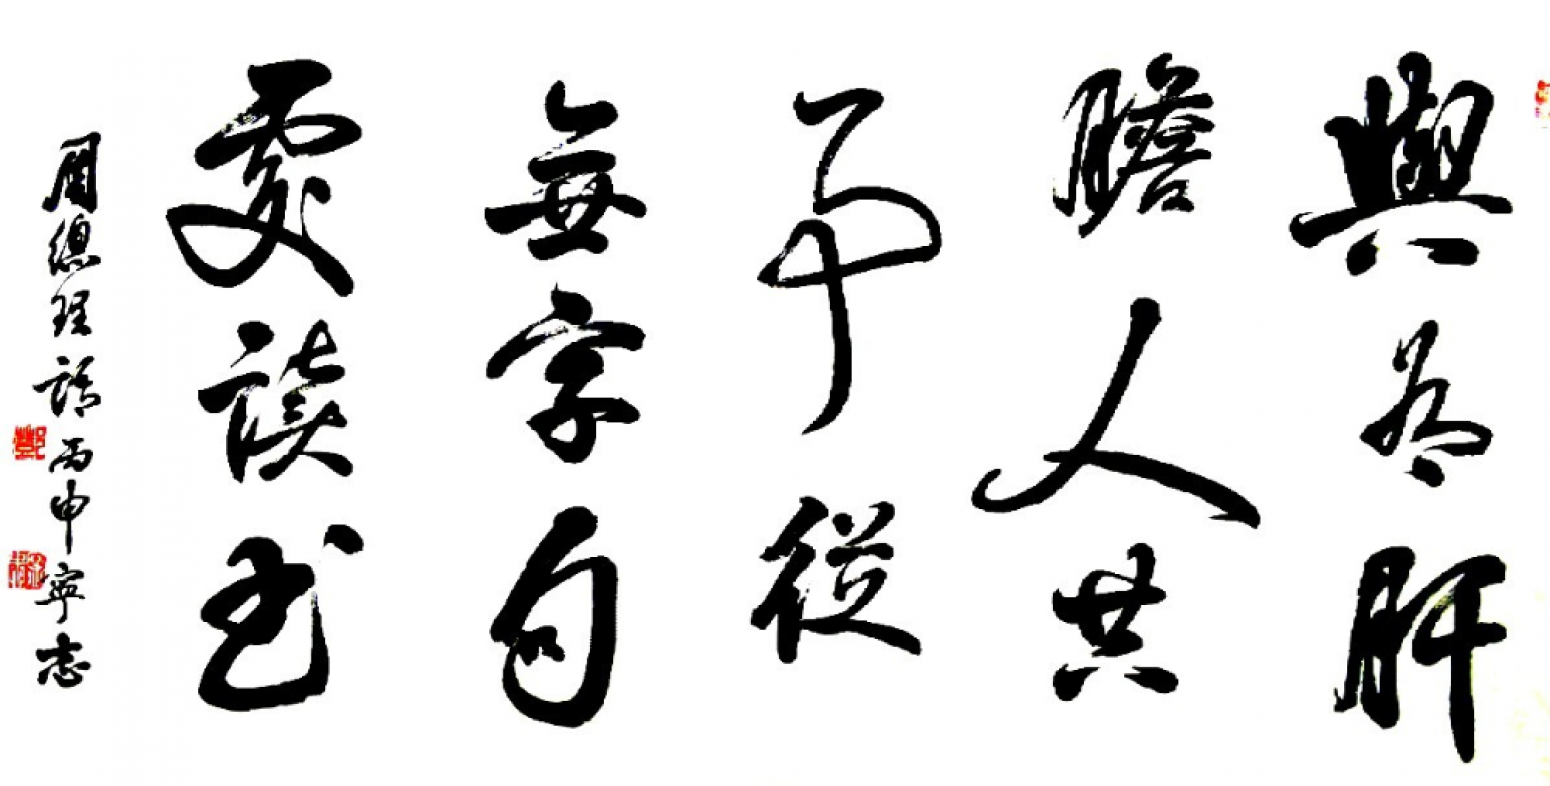 與有肝
膽人共
事從
無字句
處讀书
周總理語丙申寧志